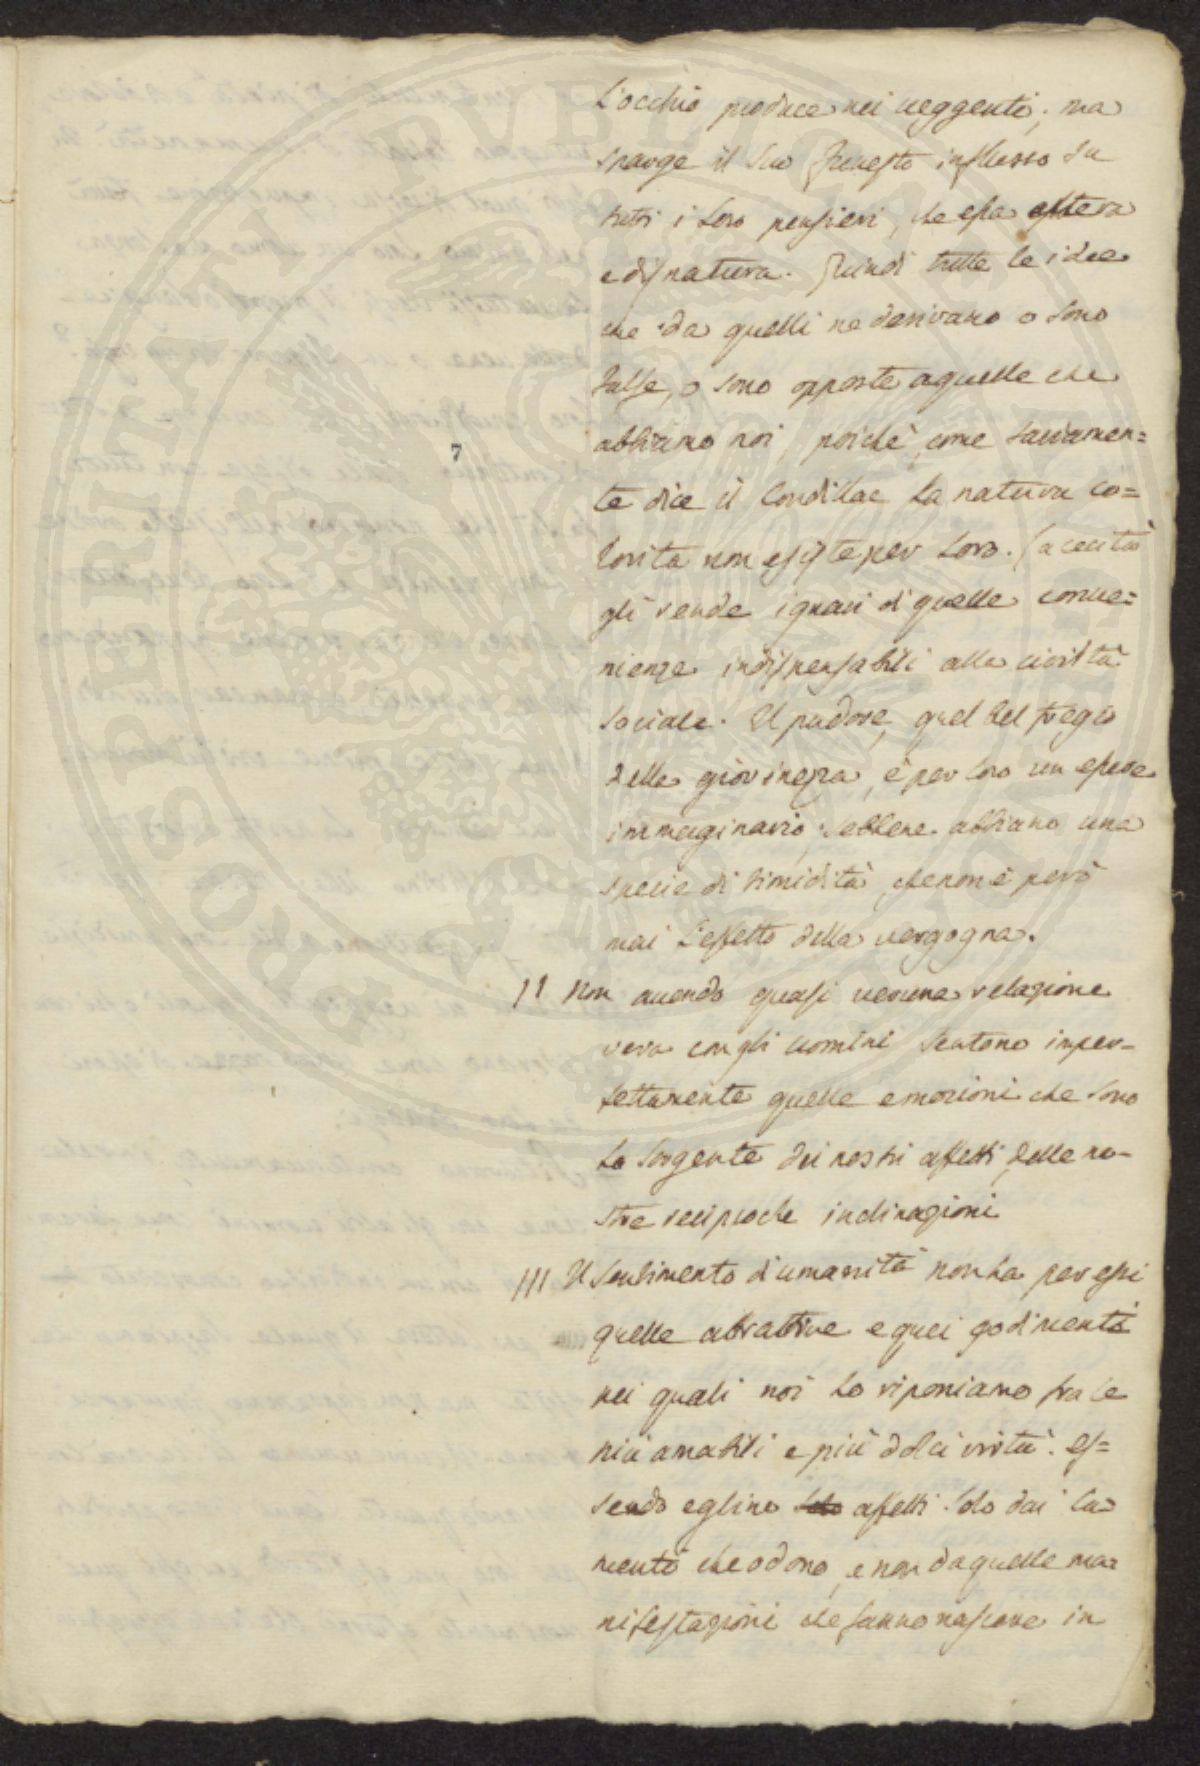 L'occhio produce nei veggenti; ma
spange il suo funesto influsso su
tutti i loro pensieri, che essa altera
e disnatura. Quindi tutte le idee
che da quelli ne derivano o sono
false, o sono opposte a quelle che
abbiamo noi, poichè, come saviamen=
te dice il Condillac la natura co=
lorita non esiste per loro. La cecità
gli rende ignari di quelle conve=
nienze indispensabili alla civiltà
sociale. Il pudore, quel bel fregio
della giovinezza, è per loro un essere
immaginario, sebbene abbiano una
specie di timidità, che non è però
mai l'effetto della vergogna.
II Non avendo quasi veruna relazione
vera con gli uomini sentono imper-
fettamente quelle emozioni che sono
la sorgente dei nostri affetti, delle no-
stre reciproche inclinazioni
III Il sentimento d'umanità non ha per essi
quelle attrattive e quei godimenti
nei quali noi lo riponiamo fra le
più amabili e più dolci virtù. Es=
sendo eglino solo affetti solo dai la=
menti che odono, e non da quelle ma=
nifestazioni che fanno nascere in
7
PROSPERITATI PVBLICAE